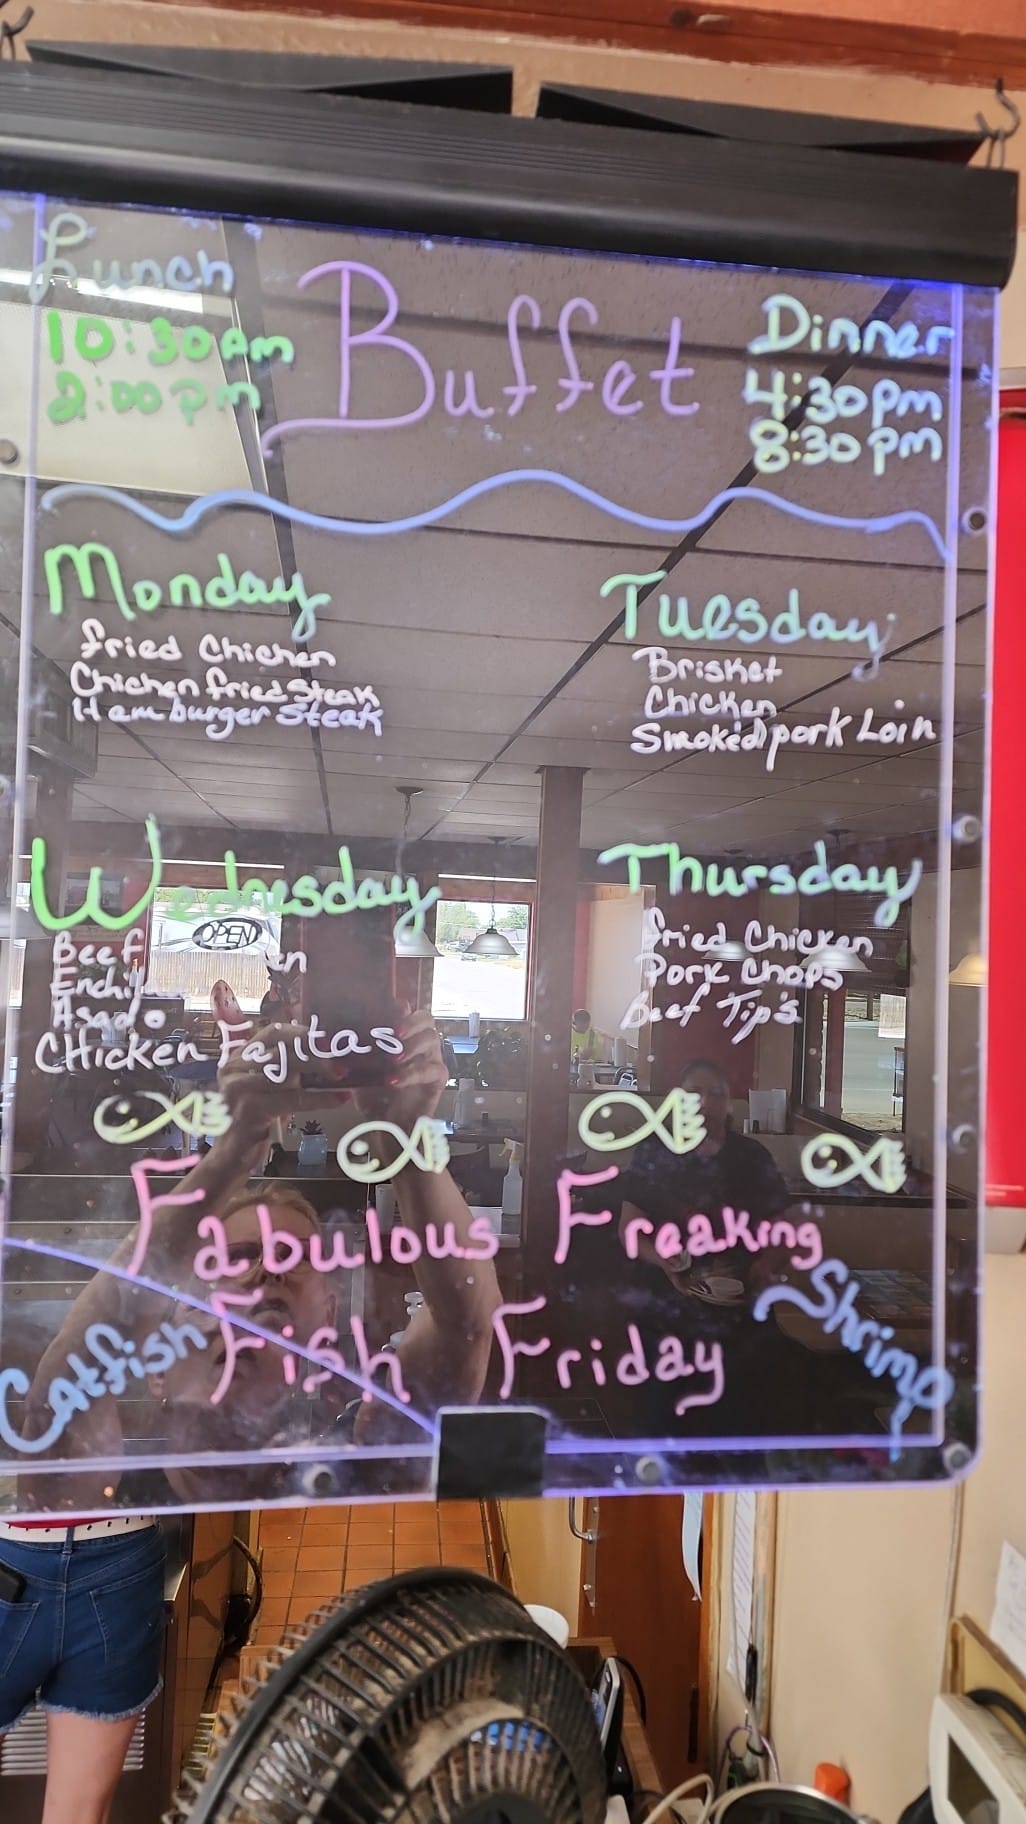 Lunch
10:30am
2:00pm
Buffet
Dinner
4:30pm
8:30pm
Monday
fried Chicken
Chicken fried Steak
Hamburger Steak
Tuesday
Brisket
Chicken
Smoked pork Loin
Wednesday
Beef
Asado
CHicken Fajitas
OPEN
Thursday
fried Chicken
Pork Chops
Beef Tip's
Fabulous Freaking
Fish Friday
Catfish
Shrimp